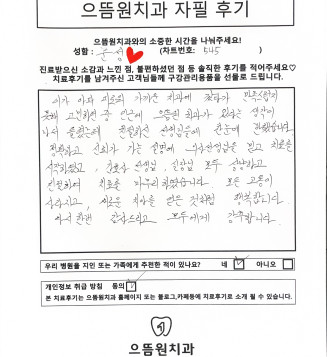 으뜸원치과 자필 후기
으뜸원치과와의 소중한 시간을 나눠주세요!
성함 : (차트번호: 545 )
진료받으신 소감과 느낀 점, 불편하셨던 점 등 솔직한 후기를 적어주세요♡
치료후기를 남겨주신 고객님들께 구강관리용품을 선물로 드립니다.
이가 아파 치료차 가까운 치과에 갔다가
못해 고민하던 중 인근에 으뜸원 치과가 있다는 생각이
나서 원장님에 한눈에
정확하고 신뢰가 가는 설명에 치료를
시작하였고, 간호사 선생님, 실장님 모두 상냥하고
친절하며 치료를 마무리하였습니다. 모든 고통이
사라지고, 새로운 치아를 얻은 것처럼 행복합니다.
다시 한번 감사드리고 모두에게 감사합니다.
우리 병원을 지인 또는 가족에게 추천한 적이 있나요? 네 아니오
개인정보 취급 방침 동의
본 치료후기는 으뜸원치과 홈페이지 또는 블로그,카페등에 치료후기로 소개 될 수 있습니다.
으뜸원치과